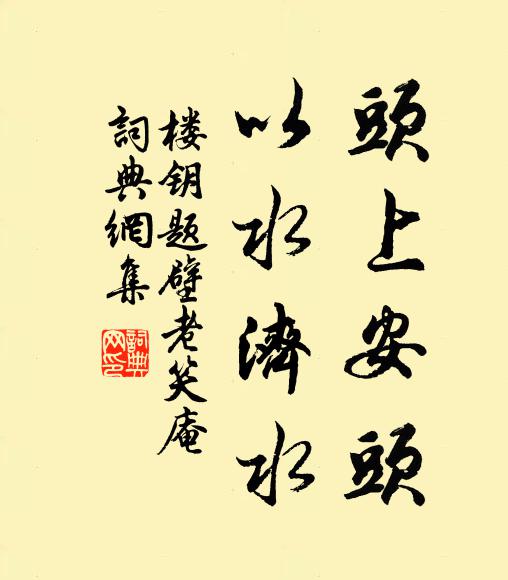 頭上安頭
以水濟水
楼钥题壁老笑庵
詞典網集
詞典
网印